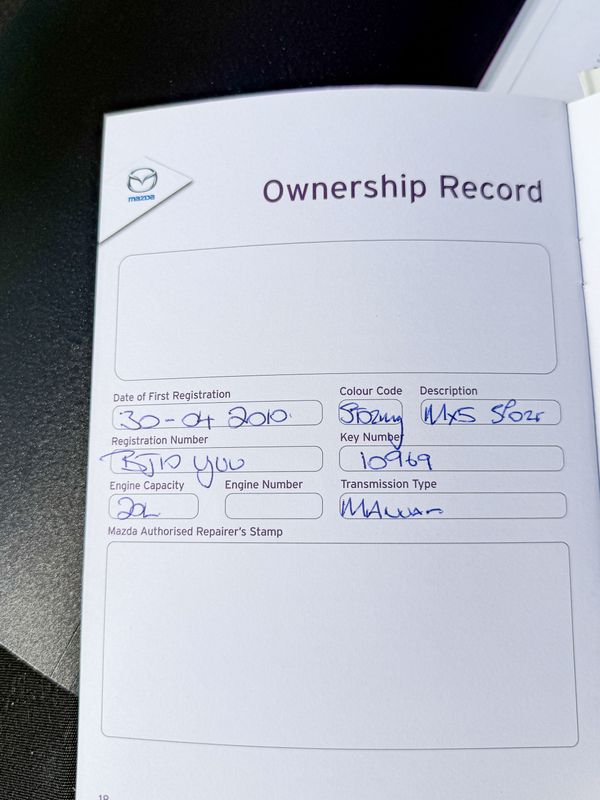 mazda
Ownership Record
Date of First Registration
Colour Code
Description
30-04 2010
Stormy
MX5 Sport
Registration Number
Key Number
BJ10
10969
Engine Capacity
Engine Number
Transmission Type
20L
Manual
Mazda Authorised Repairer's Stamp
18